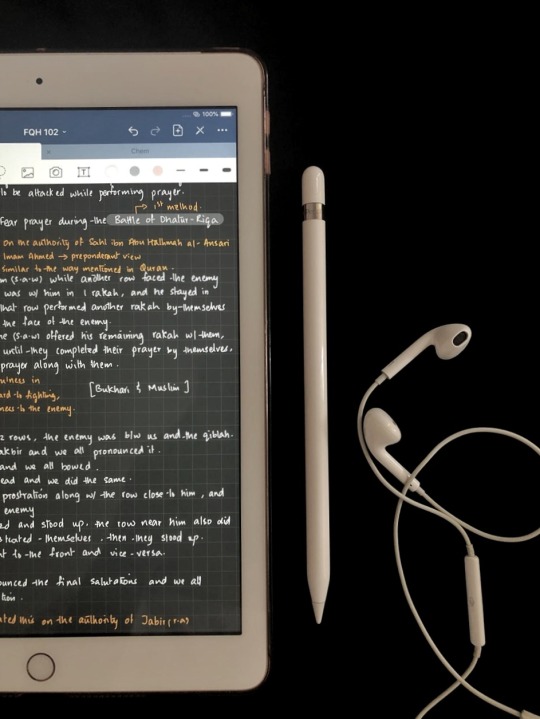 100%
FQH 102
Chem
T
to be attacked while performing prayer.
→ 1st method.
Fear prayer during the Battle of Dhatur-Riqa
on the authority of Sahl ibn Abu Hathmah al-Ansari
Imam Ahmed → preponderant view
Similar to the way mentioned in Quran.
(s.a.w) while another row faced the enemy
was w/ him in 1 rakah, and he stayed in
that row performed another rakah by themselves
the face of the enemy.
(s.a.w) offered his remaining rakah w/ them,
until they completed their prayer by themselves.
prayer along with them.
in
[Bukhari & Muslim]
to fighting,
to the enemy.
2 rows, the enemy was b/w us and the qiblah.
and we all pronounced it.
and we all bowed.
and we did the same.
prostration along w/ the row close to him, and
enemy
and stood up. the row near him also did
themselves. then they stood up.
to the front and vice-versa.
the final salutations and we all
this on the authority of Jabir (r.a)